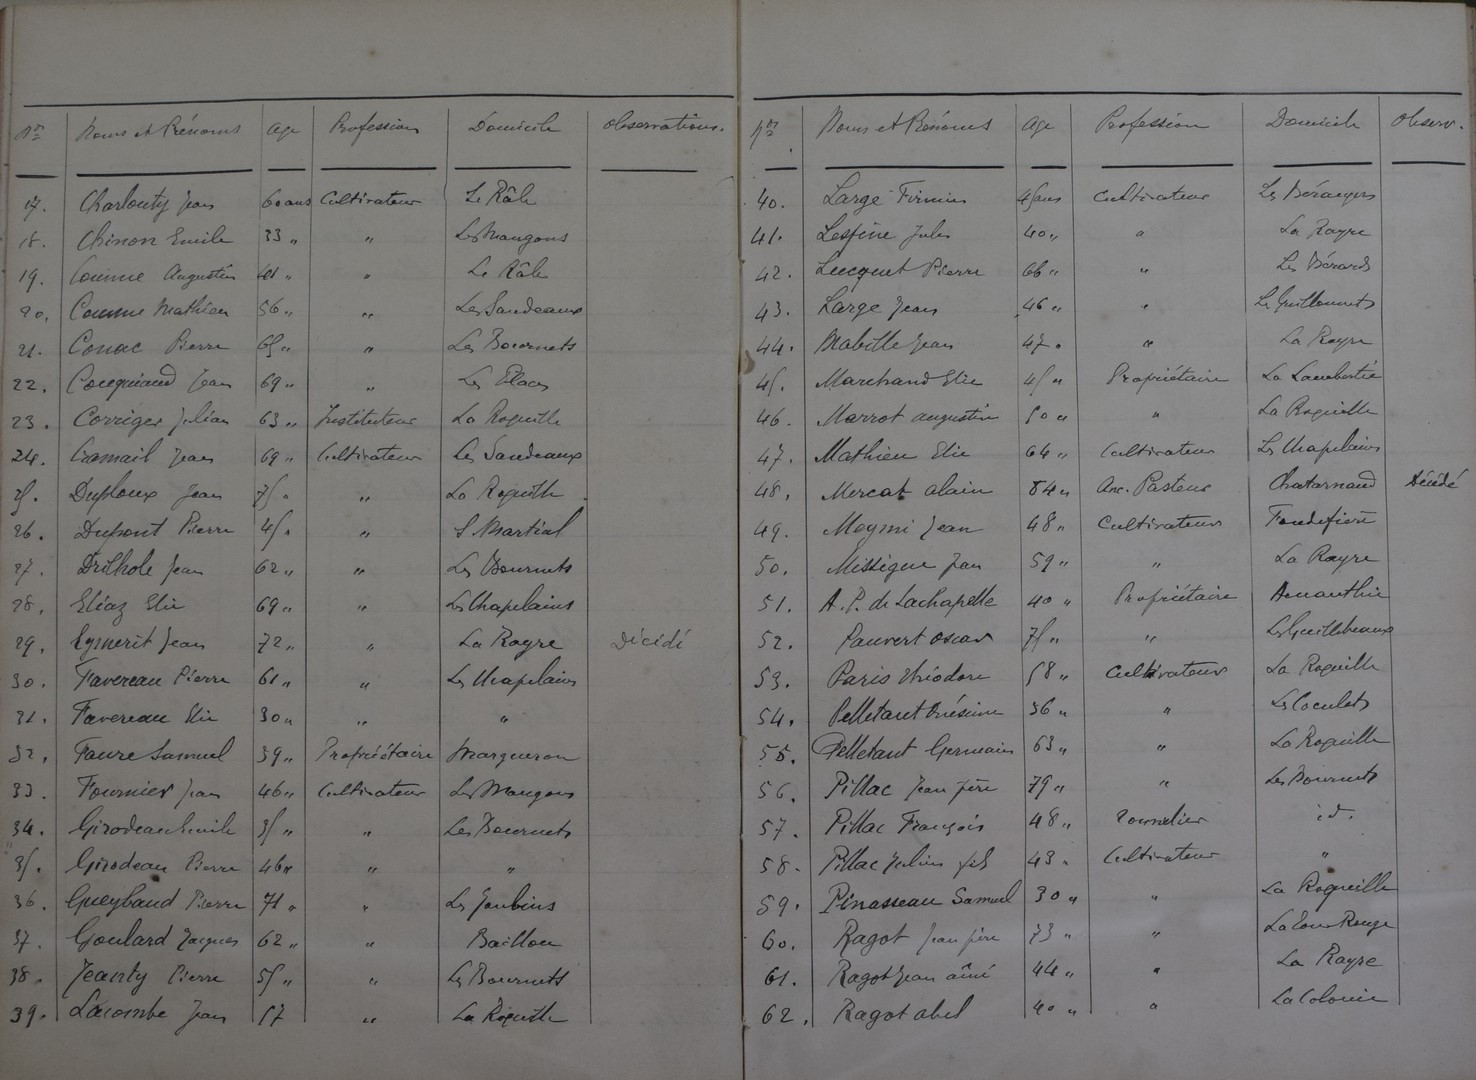 Nos Noms et Prénoms Age Profession Domicile Observations.
17. Charlouty Jean 60 ans Cultivateur Le Râle
18. Chinon Emile 33 " " Les Maugons
19. Coume Augustin 41 " " Le Râle
20. Coume Mathieu 56 " " Les Sandeaux
21. Conac Pierre 65 " " Les Bournets
22. Couquiaud Jean 69 " " Les Places
23. Corriger Julien 63 " Instituteur La Roquille
24. Cramail Jean 69 " Cultivateur Les Sandeaux
25. Duploux Jean 75 " " La Roquille
26. Dupont Pierre 45 " " St Martial
27. Drilhole Jean 62 " " Les Bournets
28. Eliaz Elie 69 " " Les Chapelains
29. Eymerit Jean 72 " " La Rayre Décédé
30. Favereau Pierre 61 " " Les Chapelains
31. Favereau Elie 30 " " "
32. Faure Samuel 39 " Propriétaire Margueron
33. Fournier Jean 46 " Cultivateur Les Maugons
34. Girodeau Emile 35 " " Les Bournets
35. Girodeau Pierre 46 " " "
36. Gueybaud Pierre 71 " " Les Jaubins
37. Goulard Jacques 62 " " Baillou
38. Jeanty Pierre 55 " " Les Bournets
39. Lacombe Jean 57 " La Roquille
Nos Noms et Prénoms Age Profession Domicile Observ.
40. Large Firmin 45 ans Cultivateur Les Bérangers
41. Lespine Jules 40 " " La Rayre
42. Lucquet Pierre 66 " " Les Bérards
43. Large Jean 46 " " Les Guillonnets
44. Mabille Jean 47 " " La Rayre
45. Marchand Elie 45 " Propriétaire La Lambertie
46. Marrot Augustin 50 " " La Roquille
47. Mathieu Elie 64 " Cultivateur Les Chapelains
48. Mercat Alain 84 " Anc. Pasteur Chatarnaud Décédé
49. Meymi Jean 48 " Cultivateur Fondefière
50. Missègue Jean 59 " " La Rayre
51. A. P. de Lachapelle 40 " Propriétaire Amanthie
52. Pauvert Oscar 75 " " Les Guillebeaux
53. Paris Théodore 58 " Cultivateur La Roquille
54. Pelletant Onésime 36 " " Les Coculets
55. Pelletant Germain 63 " " La Roquille
56. Pillac Jean père 79 " " Les Bournets
57. Pillac François 48 " Tonnelier id.
58. Pillac Julien fils 43 " Cultivateur "
59. Pinasseau Samuel 30 " " La Roqueille
60. Ragot Jean père 73 " " La Tour Rouge
61. Ragot Jean aîné 44 " " La Rayre
62. Ragot Abel 40 " " La Colonie